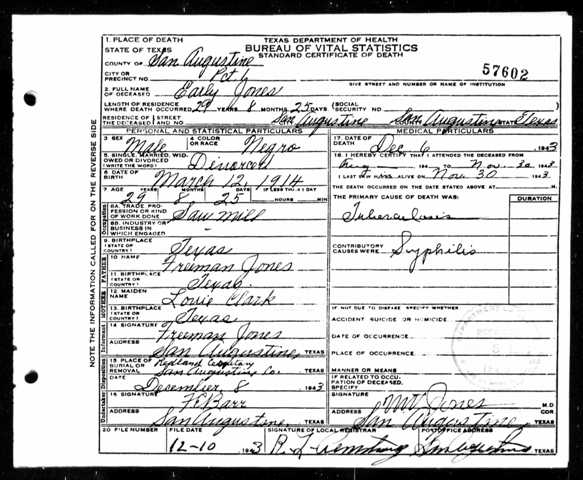 TEXAS DEPARTMENT OF HEALTH
BUREAU OF VITAL STATISTICS
STANDARD CERTIFICATE OF DEATH
57602
1. PLACE OF DEATH
STATE OF TEXAS
COUNTY OF San Augustine
CITY OR PRECINCT NO. Pct 6
GIVE STREET AND NUMBER OR NAME OF INSTITUTION
2. FULL NAME OF DECEASED Early Jones
LENGTH OF RESIDENCE WHERE DEATH OCCURRED 29 YEARS 8 MONTHS 25 DAYS (SOCIAL SECURITY NO.
RESIDENCE OF THE DECEASED (STREET AND NO. San Augustine San Augustine STATE Texas
PERSONAL AND STATISTICAL PARTICULARS
3. SEX Male 4. COLOR OR RACE Negro
5. SINGLE, MARRIED, WIDOWED OR DIVORCED (WRITE THE WORD) Divorced
6. DATE OF BIRTH March 12, 1914
7. AGE 29 YEARS 8 MONTHS 25 DAYS IF LESS THAN 1 DAY HOURS MIN
8A. TRADE, PROFESSION OR KIND OF WORK DONE Saw mill
8B. INDUSTRY OR BUSINESS IN WHICH ENGAGED
9. BIRTHPLACE (STATE OR COUNTRY) Texas
10. NAME Freeman Jones
11. BIRTHPLACE (STATE OR COUNTRY) Texas
12. MAIDEN NAME Louie Clark
13. BIRTHPLACE (STATE OR COUNTRY) Texas
14. SIGNATURE Freeman Jones
ADDRESS San Augustine, TEXAS
15. PLACE OF BURIAL OR REMOVAL San Augustine Co. TEXAS
DATE December 8 1943
16. SIGNATURE
ADDRESS San Augustine, TEXAS
20. FILE NUMBER FILE DATE 12-10 1943
SIGNATURE OF LOCAL REGISTRAR
POSTOFFICE ADDRESS
MEDICAL PARTICULARS
17. DATE OF DEATH Dec 6 1943
18. I HEREBY CERTIFY THAT I ATTENDED THE DECEASED FROM
TO Nov. 30 1943
I LAST SAW ALIVE ON Nov 30 1943
THE DEATH OCCURRED ON THE DATE STATED ABOVE AT M.
THE PRIMARY CAUSE OF DEATH WAS: DURATION
Tuberculosis
CONTRIBUTORY CAUSES WERE: Syphilis
IF NOT DUE TO DISEASE, SPECIFY WHETHER
ACCIDENT, SUICIDE OR HOMICIDE
DATE OF OCCURRENCE
PLACE OF OCCURRENCE
MANNER OR MEANS
IF RELATED TO OCCUPATION OF DECEASED, SPECIFY
SIGNATURE Jones M.D.
COR.
ADDRESS San Augustine TEXAS
NOTE THE INFORMATION CALLED FOR ON THE REVERSE SIDE
Occupation
FATHER
MOTHER
Informant
Undertaker